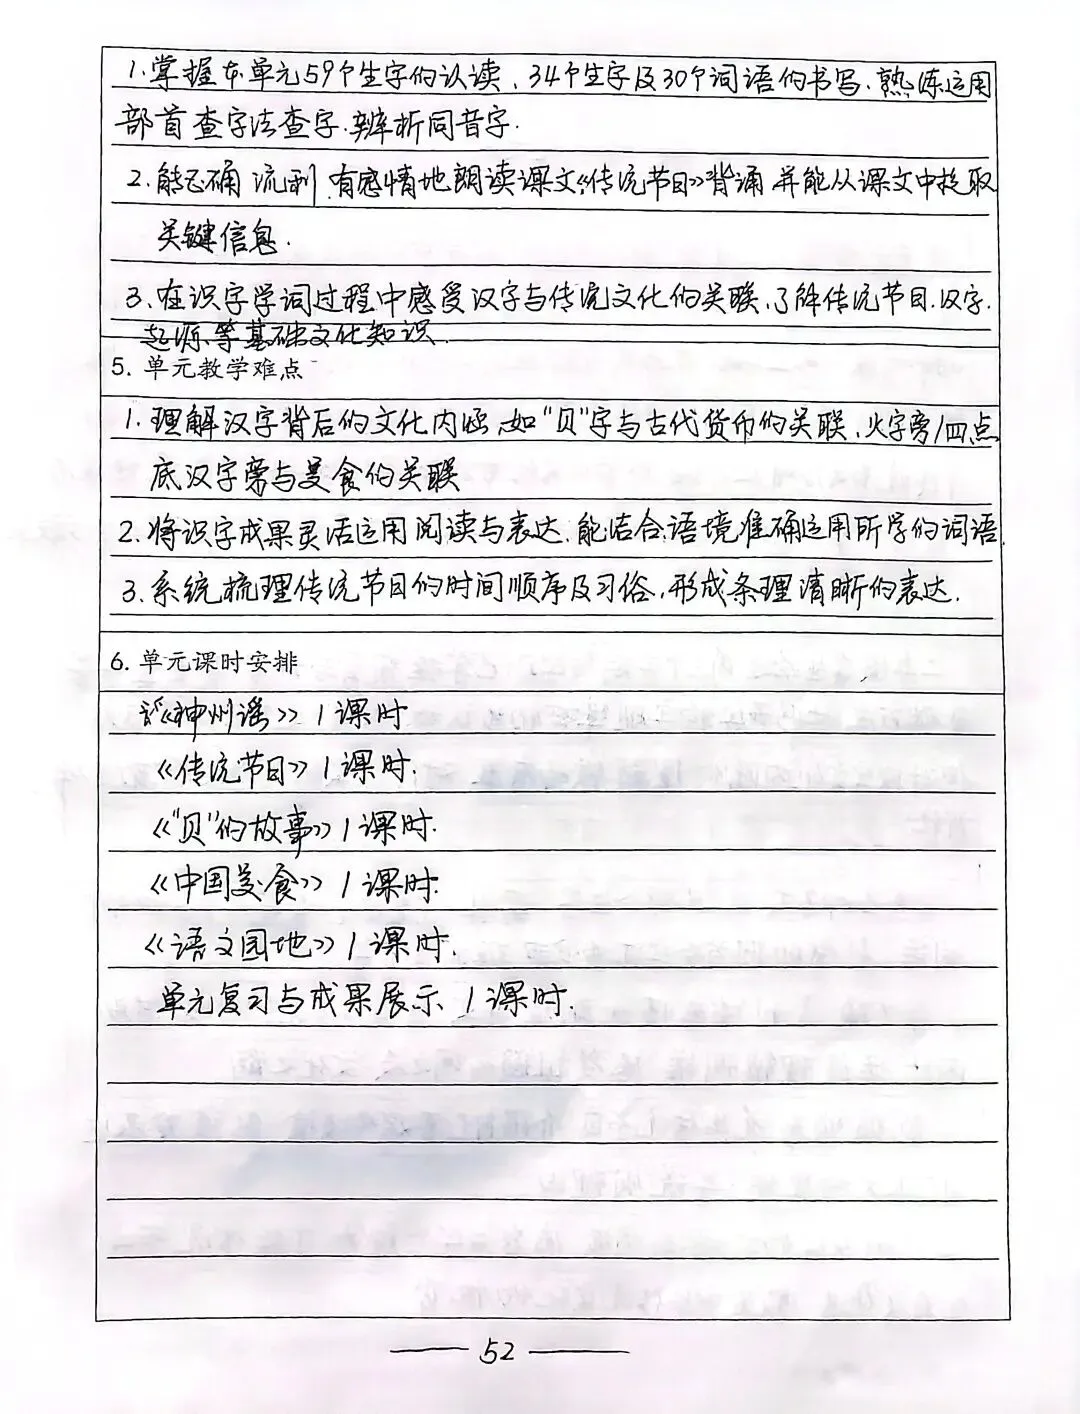 1.掌握本单元59个生字的认读、34个生字及30个词语的书写.熟练运用
部首查字法查字.辨析同音字.
2.能正确 流利 有感情地朗读课文《传统节日》背诵 并能从课文中提取
关键信息.
3.在识字学词过程中感受汉字与传统文化的关联,了解传统节日.汉字.
起源等基础文化知识.
5. 单元教学难点
1.理解汉字背后的文化内涵,如“贝”字与古代货币的关联、火字旁/四点
底汉字旁与美食的关联
2.将识字成果灵活运用阅读与表达.能结合语境准确运用所学的词语.
3.系统梳理传统节日的时间顺序及习俗,形成条理清晰的表达.
6. 单元课时安排
《神州谣》 1课时
《传统节日》1课时.
《“贝”的故事》1课时.
《中国美食》 1课时.
《语文园地》1课时.
单元复习与成果展示 1课时.
52